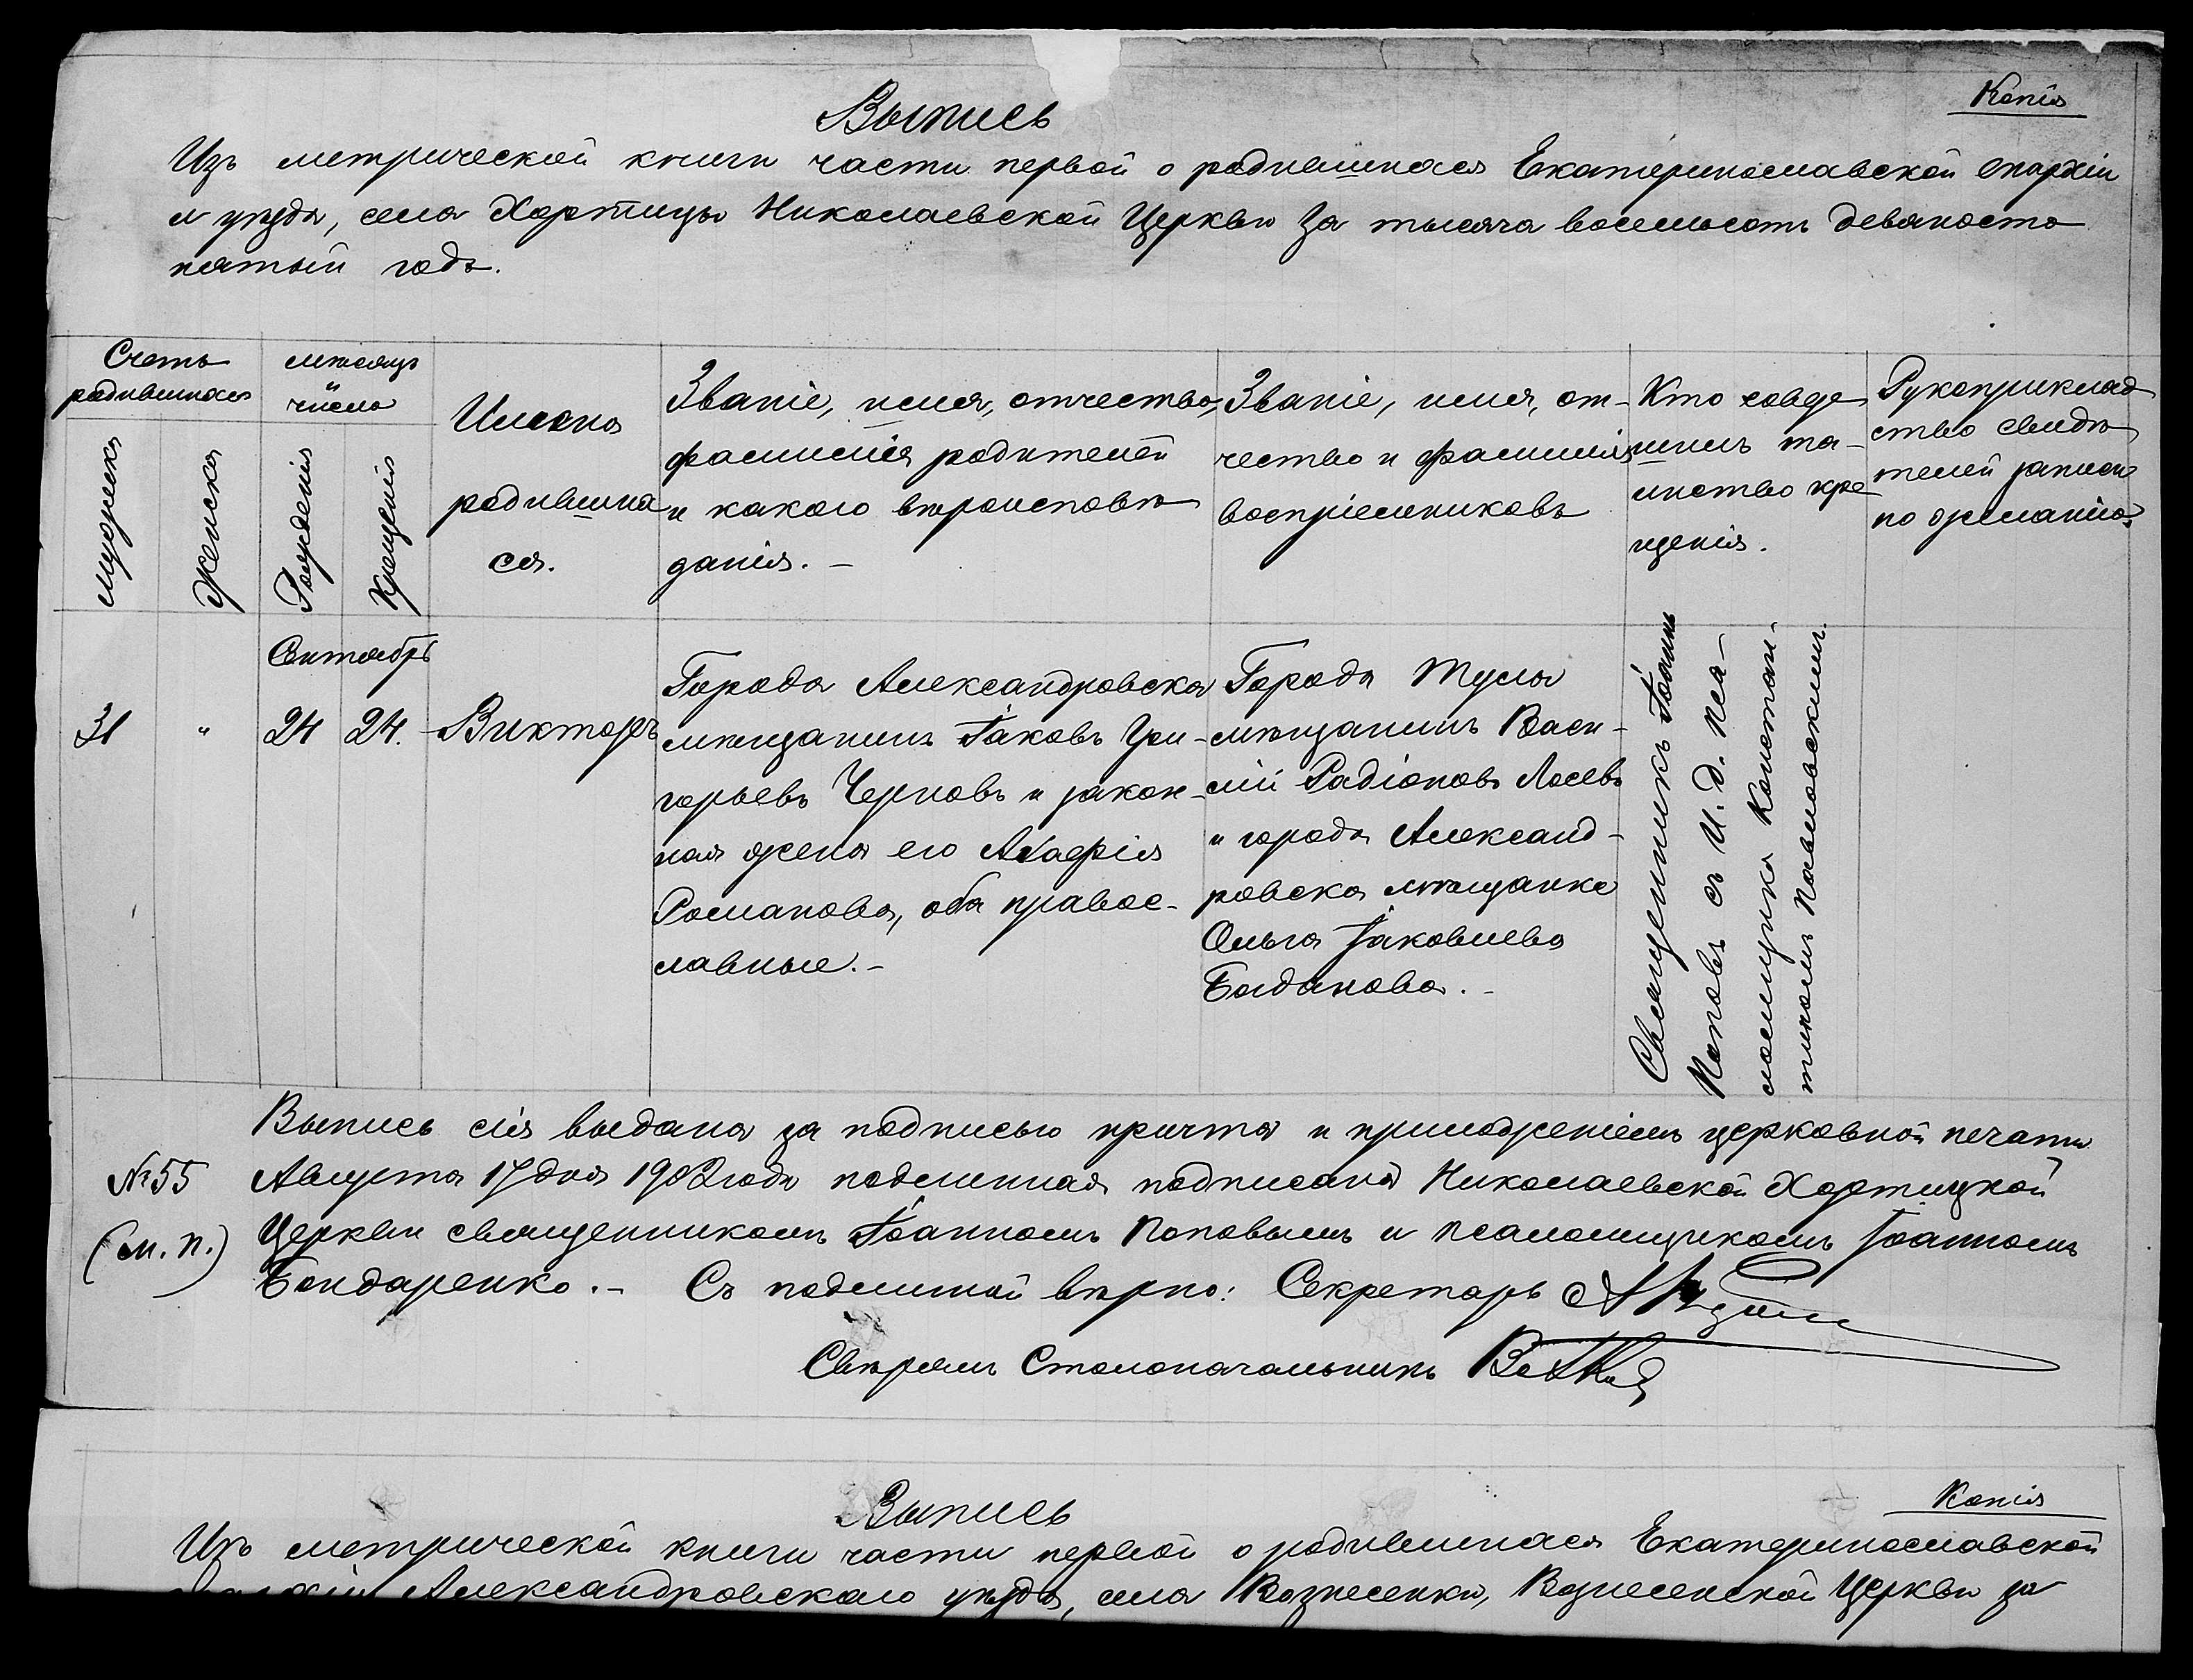 Копія
Выпись
Изъ метрической книги части первой о родившихся Екатеринославской епархіи
и уѣзда, села Хортицы Николаевской Церкви за тысяча восемьсотъ девяносто
пятый годъ.
Счетъ
родившихся
Мужска
Женска
мѣсяцъ
и
число
Рожденія
Крещенія
Имена
родившиха
ся.
Званіе, имя, отчество,
фамилія родителей
и какого вѣроисповѣ
данія. —
Званіе, имя, от-
чество и фамилія
воспріемниковъ
Кто совер
шилъ та-
инство кре
щенія.
Рукоприклад
ство свидѣ
телей записи
по желанію.
31
"
Октябрь
24
24.
Викторъ
Города Александровска
мѣщанинъ Іаковъ Гри-
горьевъ Черновъ и закон-
ная жена его Агафія
Романова, оба правос-
лавные. -
Города Тулы
мѣщанинъ Васи-
лій Радіоновъ Лосевъ
и города Александ-
ровска мѣщанка
Ольга Іаковлева
Богданова. -
Священникъ Іоаннъ
Поповъ съ И. д. Пса-
ломщика Констан-
тиномъ Павловскимъ.
Выпись сія выдана за подписью причта и приложеніемъ церковной печати
№ 55
Августа 17 дня 1902 года подлинная подписана Николаевской Хортицкой
(м. п.)
Церкви священникомъ Іоанномъ Поповымъ и псаломщикомъ Іоанномъ
Бондаренко. - Съ подлинной вѣрно: Секретарь
Свѣрялъ Столоначальникъ
Копія
Выпись
Изъ метрической книги части первой о родившихся Екатеринославской
епархіи Александровскаго уѣзда, села Вознесенки, Вознесенской Церкви за